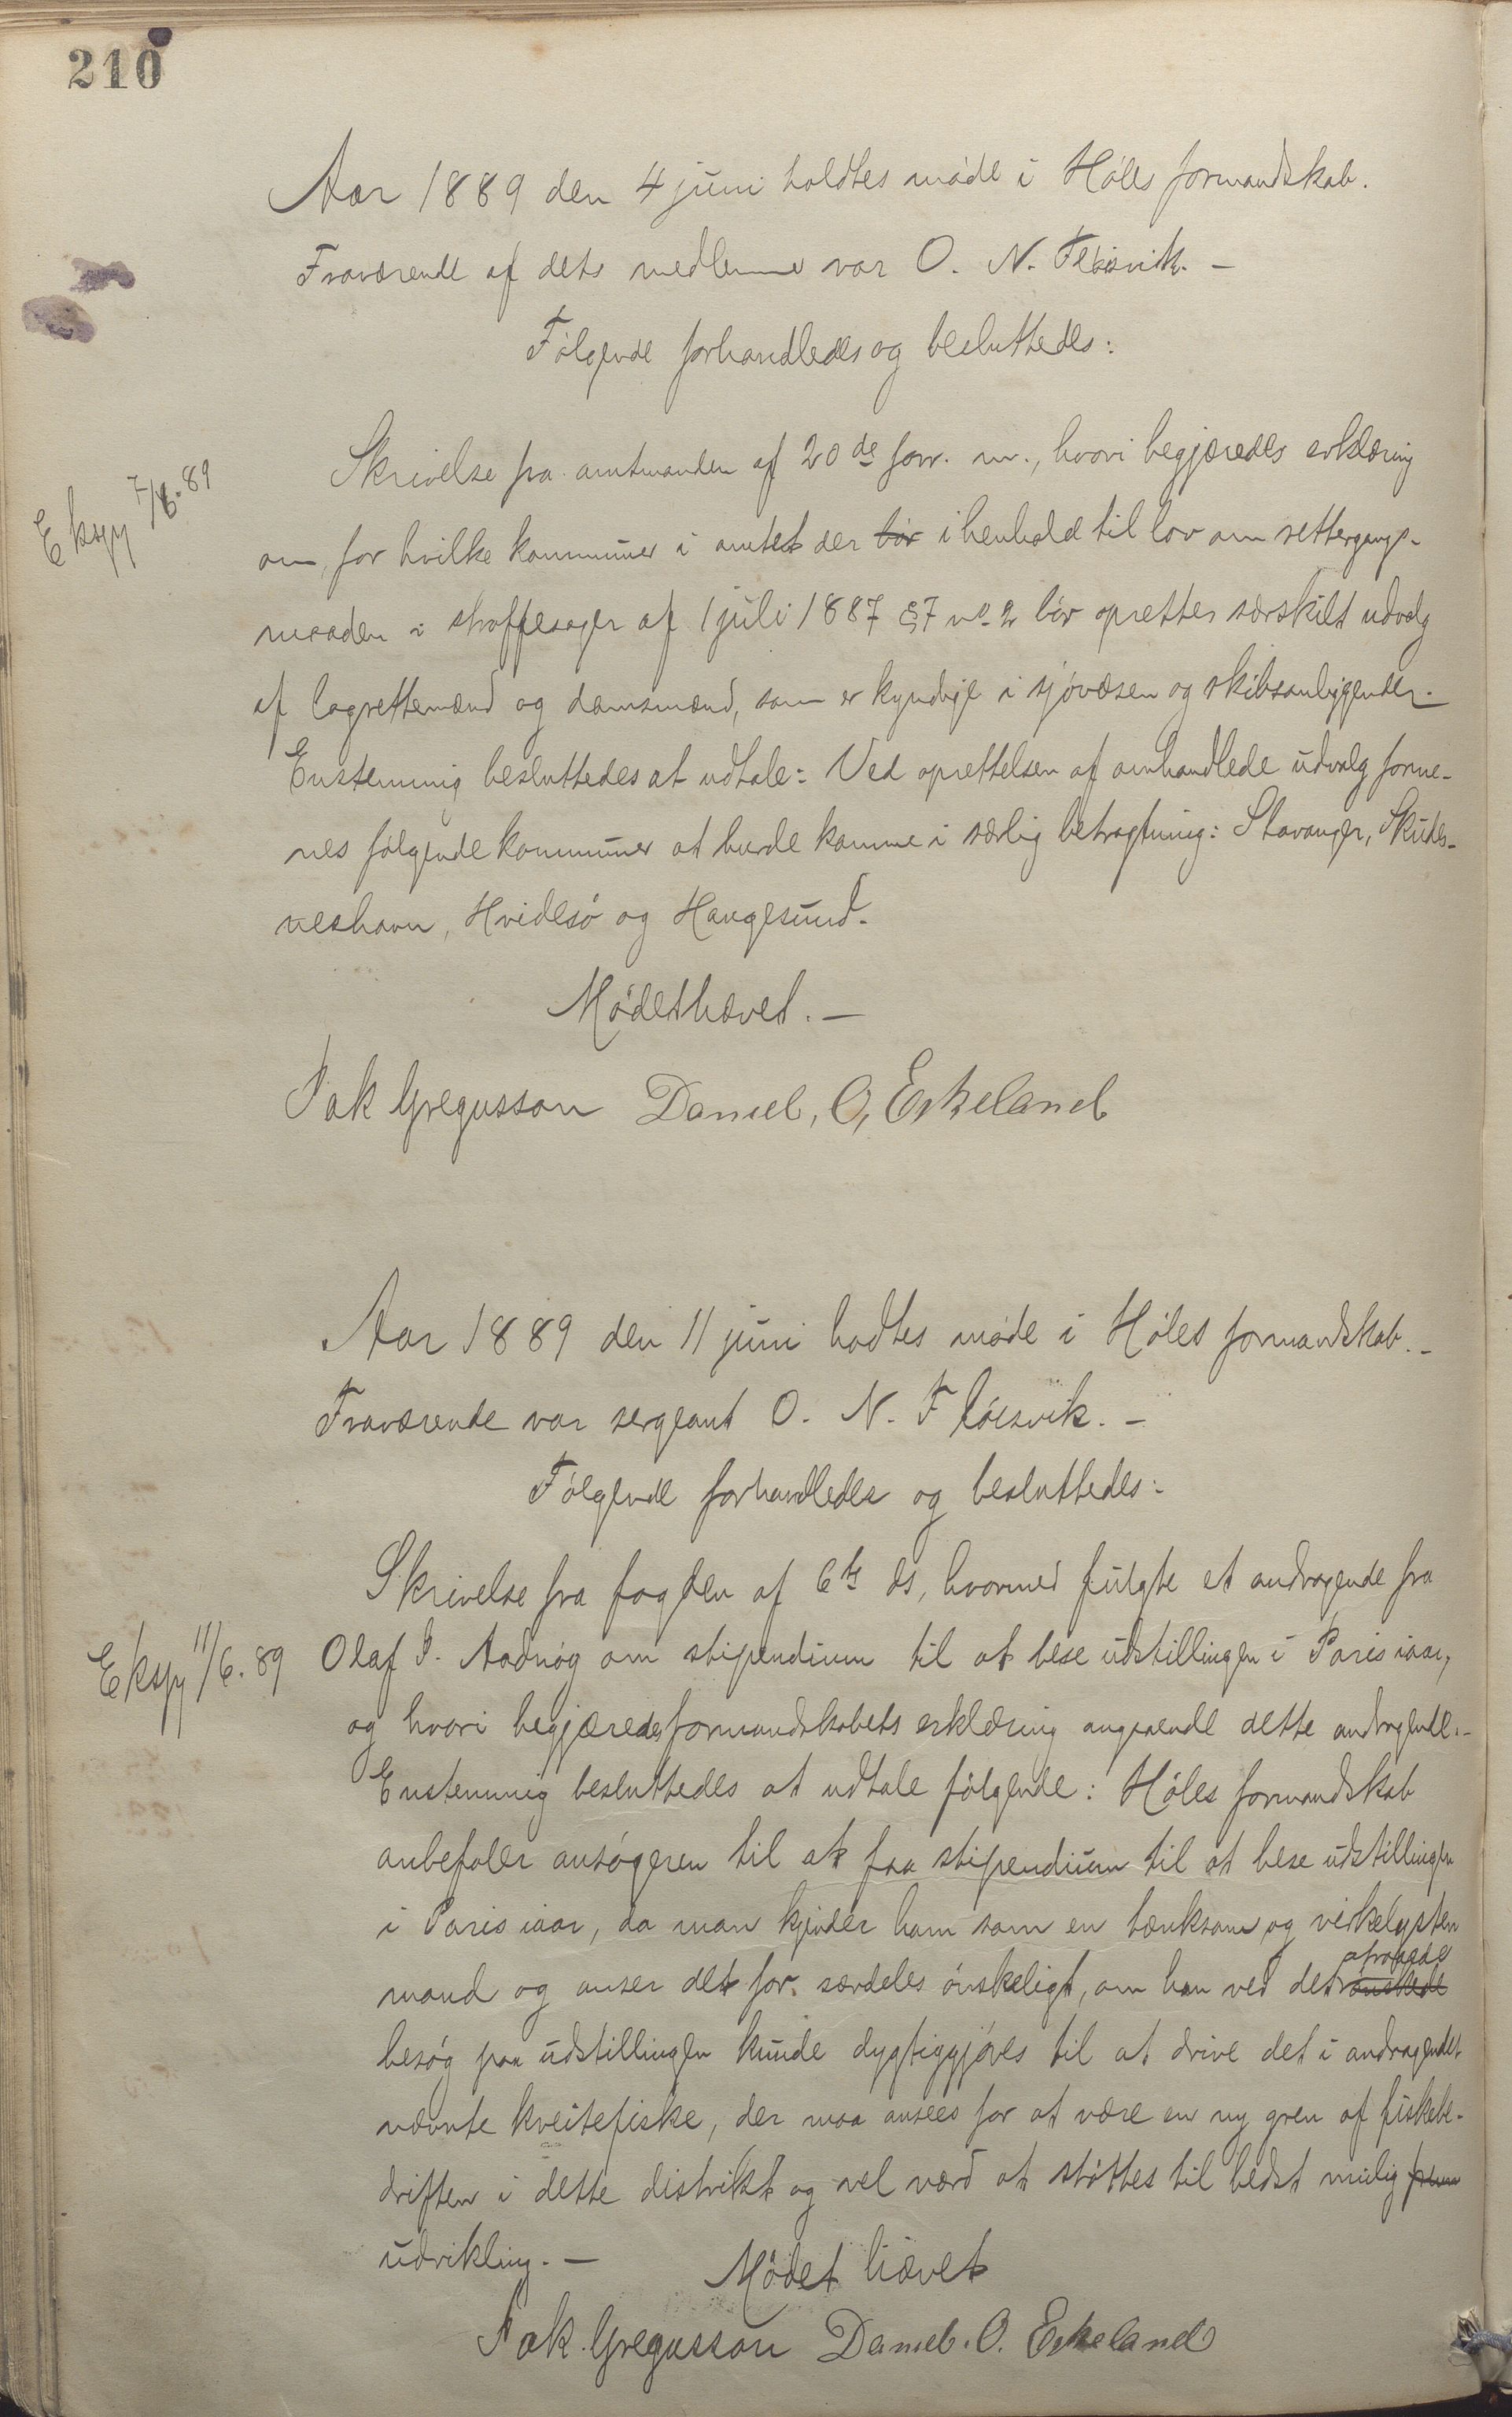 210
Aar 1889 den 4 juni holdtes møde i Høles formandskab.
Fraværende af dets medlemmer var O. N. Fløisvik. –
Følgende forhandledes og besluttedes:
Ekspy 7/6.89
Skrivelse fra amtmanden af 20de forr. m., hvori begjæredes erklæring
om, for hvilke kommuner i amtet der bør i henhold til lov om rettergangs-
maaden i straffesager af 1 juli 1887 §7 no 2 bør oprettes særskilt udvalg
af lagrettemænd og domsmænd, som er kyndige i sjøvæsen og skibsanliggender.
Enstemmig besluttedes at udtale: Ved oprettelsen af omhandlede udvalg forme-
nes følgende kommuner at burde komme i særlig betragtning: Stavanger, Skudes-
neshavn, Hvidesø og Haugesund.
Mødet hævet. –
Jak Gregusson Daniel, O, Eskeland
Aar 1889 den 11 juni hodtes møde i Høles formandskab. –
Fraværende var sergeant O. N. Fløisvik. –
Følgende forhandledes og besluttedes:
Skrivelse fra fogden af 6te ds, hvormed fulgte et andragende fra
Ekspy 11/6.89
Olaf J. Aadnøg om stipendium til at bese udstillingen i Paris iaar,
og hvori begjæredes formandskabets erklæring angaaende dette andragende. –
Enstemmig besluttedes at udtale følgende: Høles formandskab
anbefaler ansøgeren til at faa stipendium til at bese udstillingen
i Paris iaar, da man kjender ham som en tænksom og virkelysten
mand og anser det for særdeles ønskeligt, om han ved det ønskede
besøg paa udstillingen kunde dygtiggjøres til at drive det i andragendet
nævnte kveitefiske, der maa ansees for at være en ny gren af fiskebe-
driften i dette distrikt og vel værd at støttes til bedst mulig
udvikling. –
Mødet hævet
Jak. Gregusson Daniel. O. Eskeland